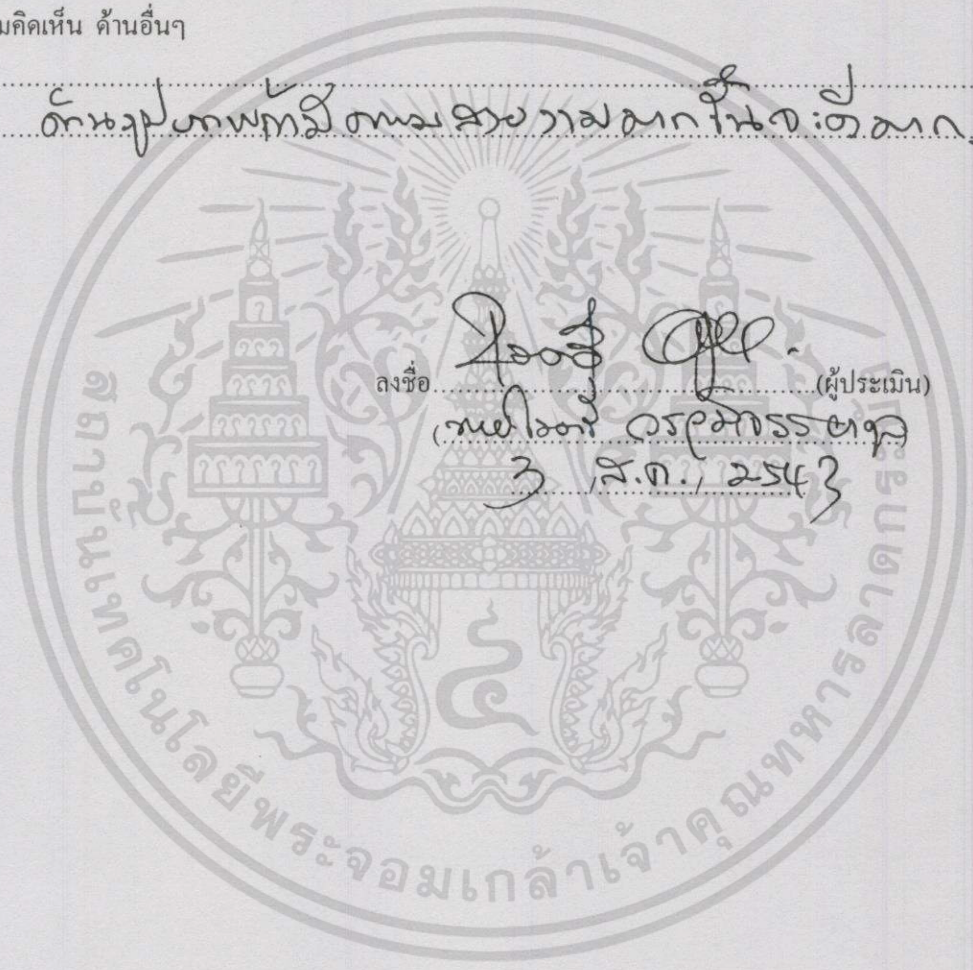 มคิดเห็น ด้านอื่นๆ
ด้านรูปภาพถ้ามีความสวยงามมากขึ้นจะดีมาก
ลงชื่อ (ผู้ประเมิน)
(นายไมตรี
3 ส.ค. 2543
สถาบันเทคโนโลยีพระจอมเกล้าเจ้าคุณทหารลาดกระบัง